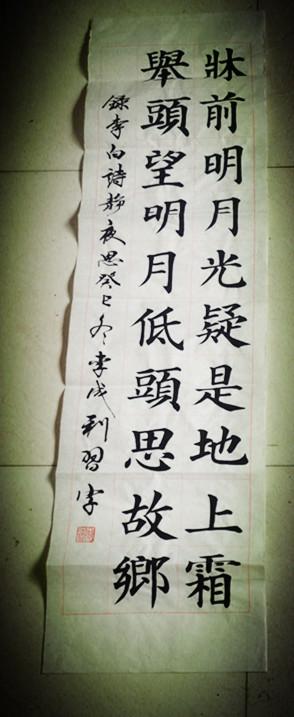 牀前明月光疑是地上霜
舉頭望明月低頭思故鄉
錄李白詩靜夜思癸巳冬李成利習字